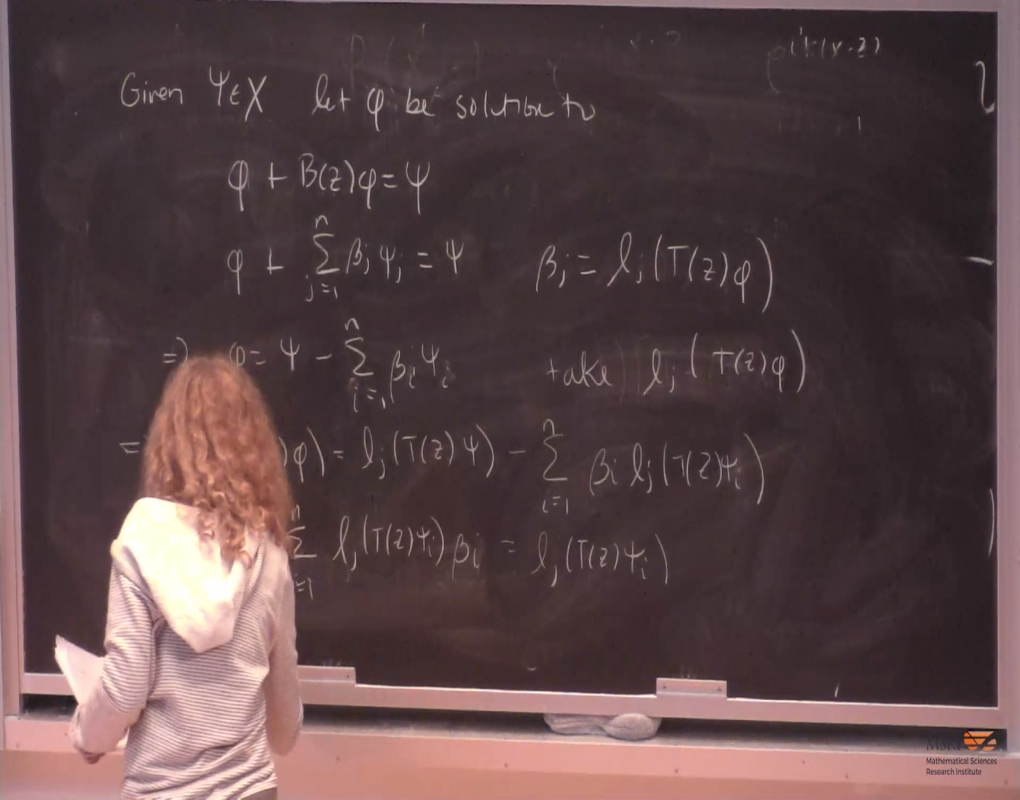 e^{ik(x-z)}
Given Ψ∈X let φ be solution to
φ + B(z)φ = Ψ
φ + \sum_{j=1}^{n} β_j Ψ_j = Ψ    β_j = l_j(T(z)φ)
⇒ φ = Ψ - \sum_{i=1}^{n} β_i Ψ_i    take l_j(T(z)φ)
φ) = l_j(T(z)Ψ) - \sum_{i=1}^{n} β_i l_j(T(z)Ψ_i)
\sum_{i=1}^{n} l_j(T(z)Ψ_i) β_i = l_j(T(z)Ψ_i)
MSRI
Mathematical Sciences
Research Institute